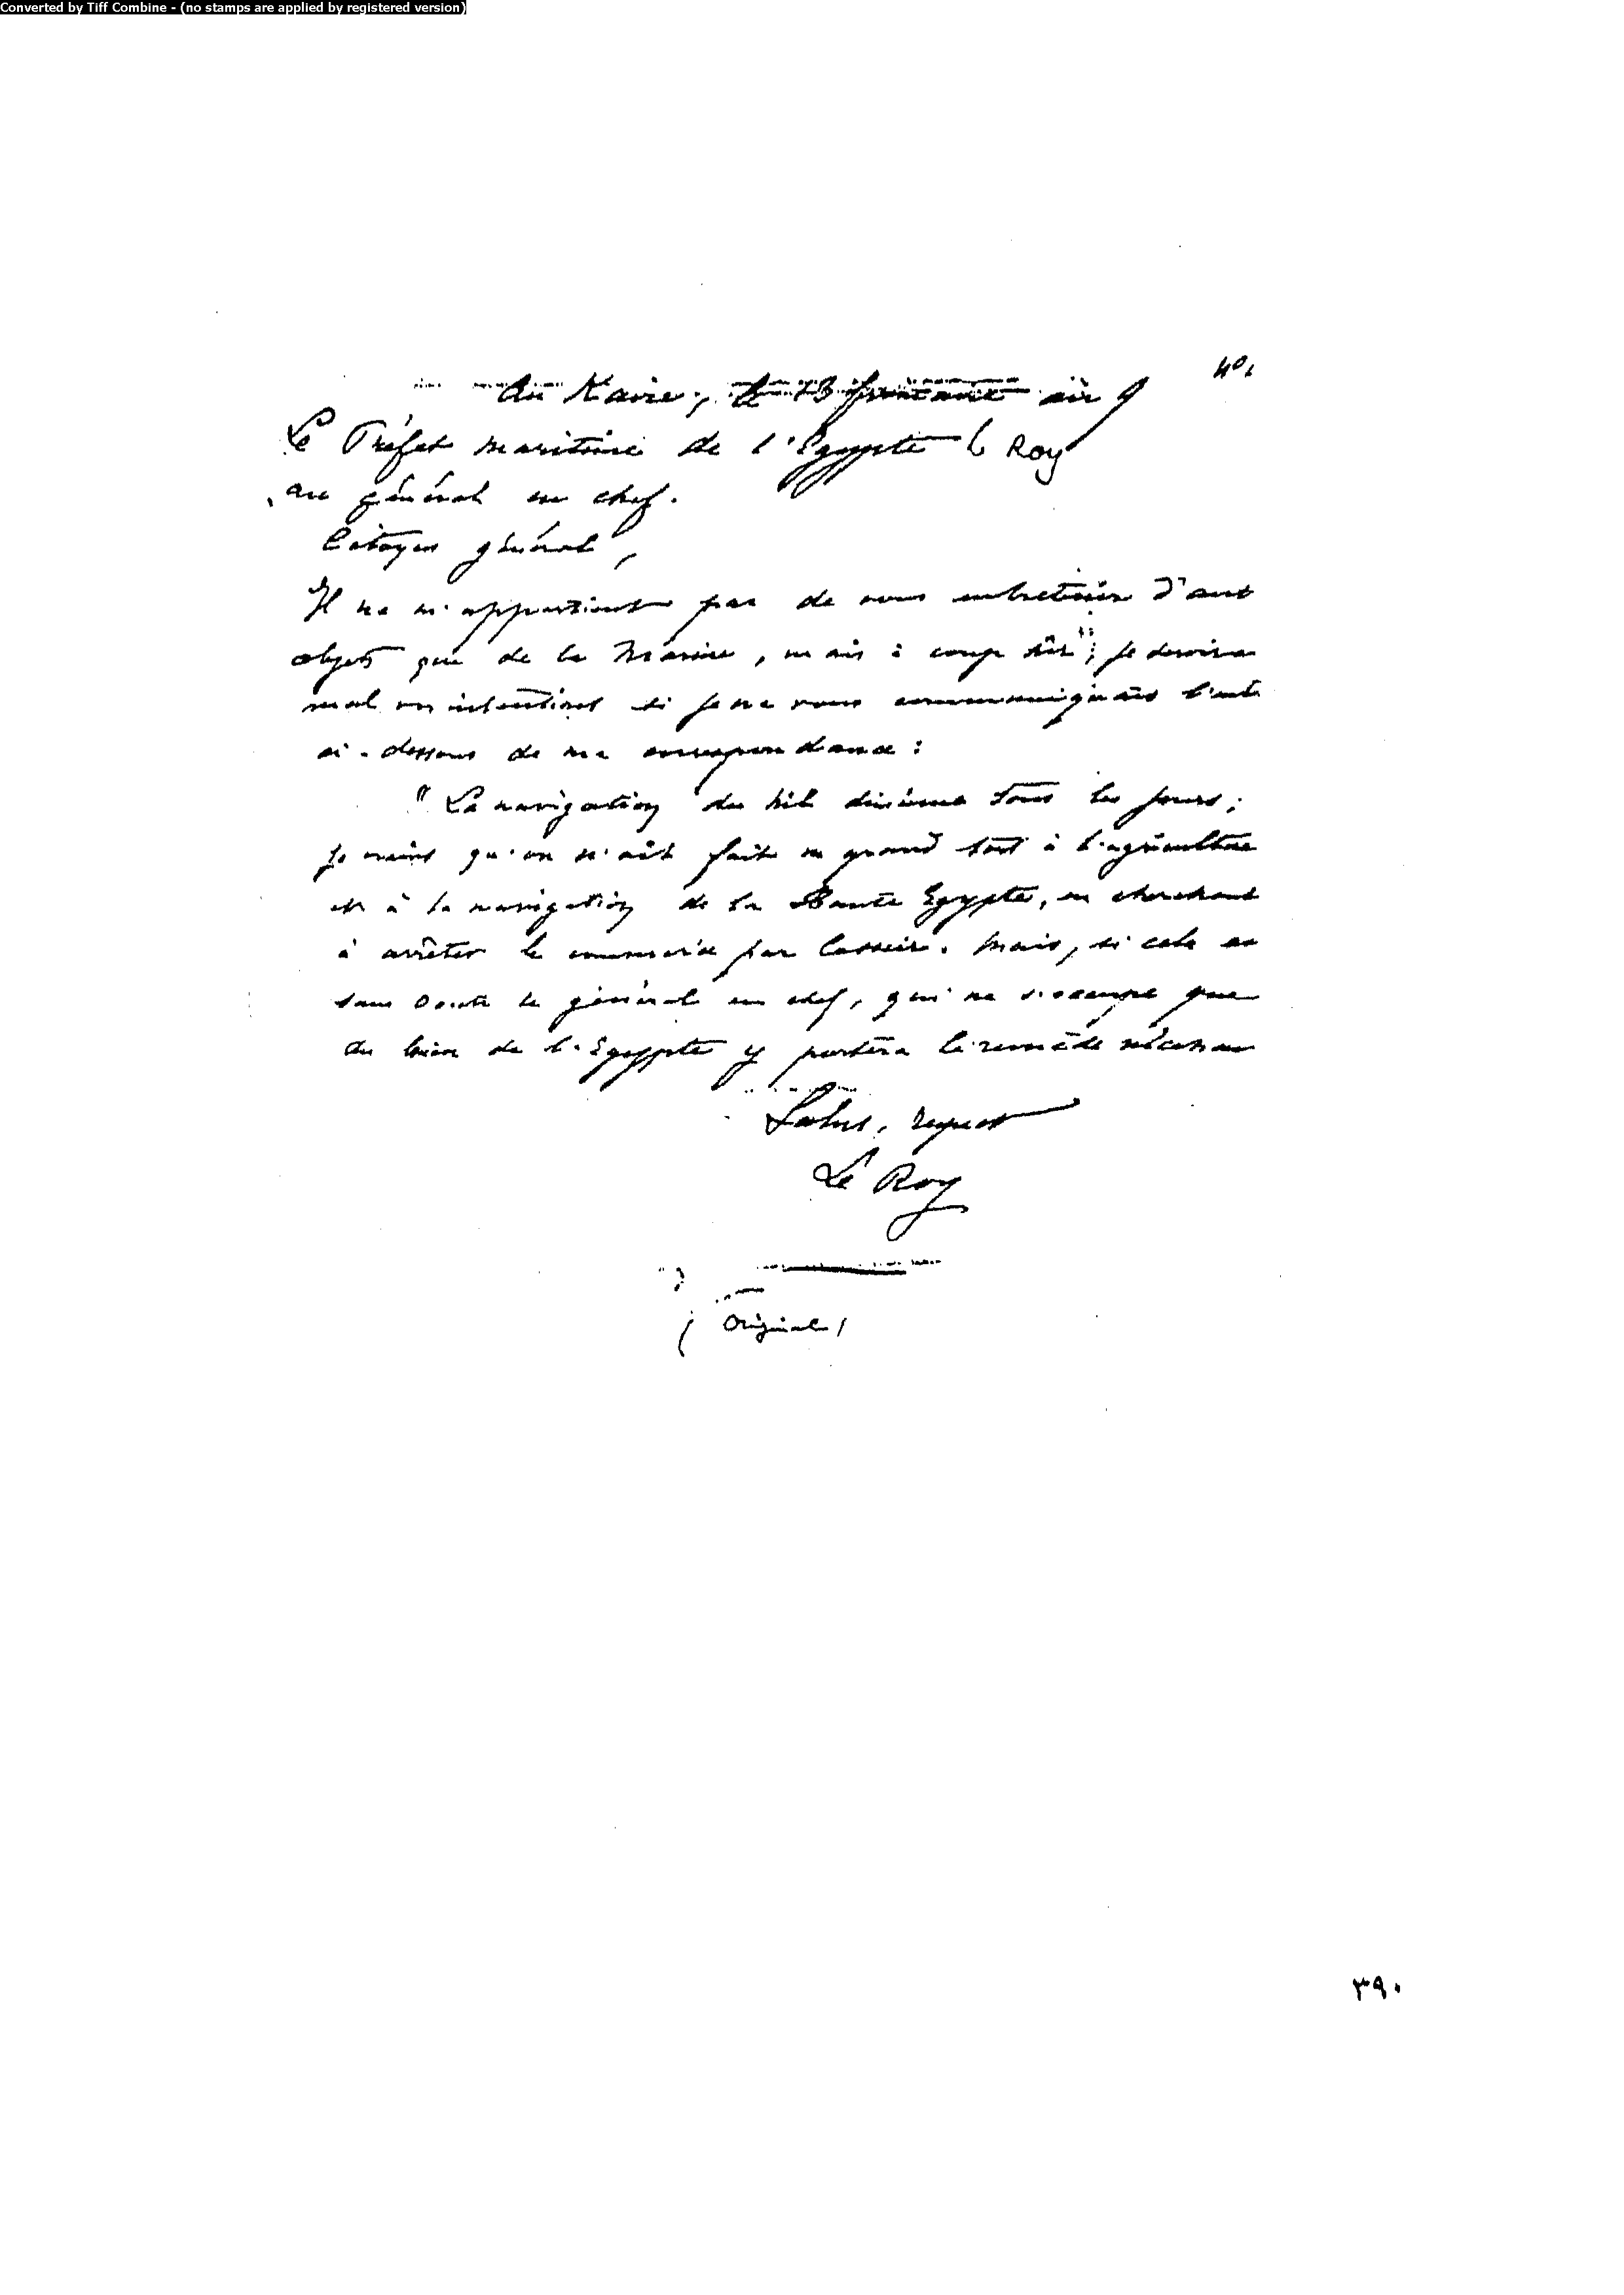 Converted by Tiff Combine - (no stamps are applied by registered version)
401
Au Kaire, le 13 frimaire an 9
Le Préfet maritime de l'Egypte Le Roy
au général en chef.
Citoyen général,
Il ne m'appartient pas de vous entretenir d'aut
objets que de la Marine, mais à coup sûr, je
mal vos intentions si je ne vous communiquais
ci-dessous de ma correspondance :
" La navigation du Nil diminue tous les jours ;
je crains qu'on n'ait fait un grand tort à l'agriculture
et à la navigation de la Haute Egypte, en cherchant
à arrêter le commerce par Cosseir. Mais, si cela es
sans doute le général en chef, qui ne s'occupe que
du bien de l'Egypte y portera le remède nécessai
Salut, respect
Le Roy
( Original )
٣٩٠